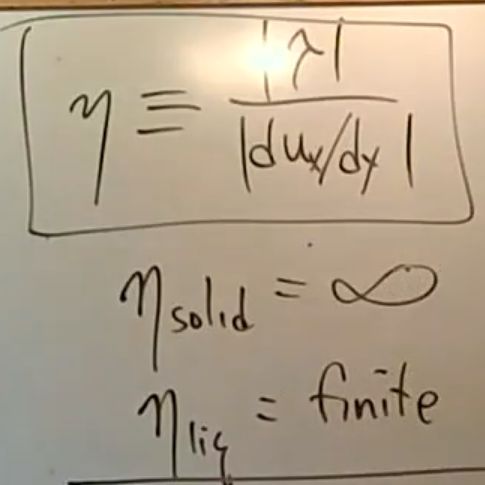 η ≡ |τ| / |du_x/dy|
η_solid = ∞
η_liq = finite